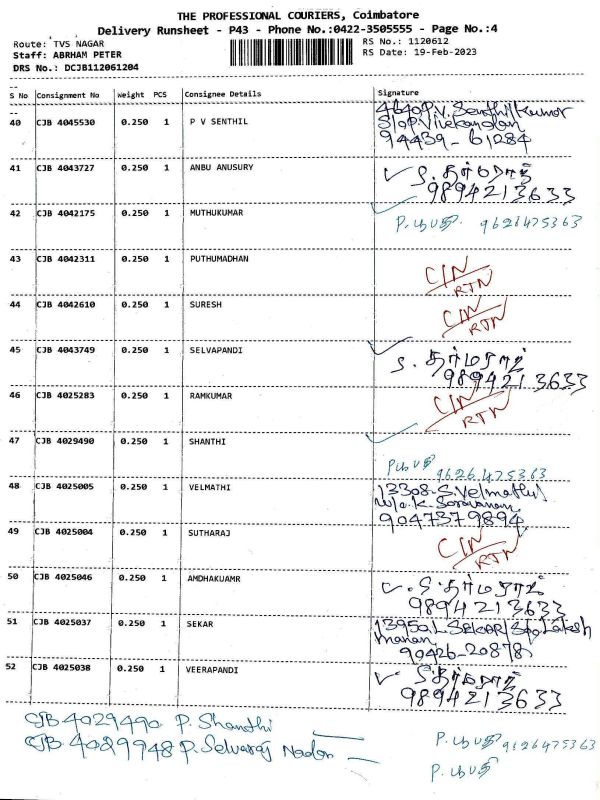 THE PROFESSIONAL COURIERS, Coimbatore
Delivery Runsheet - P43 - Phone No.:0422-3505555 - Page No.:4
Route: TVS NAGAR
RS No.: 1120612
Staff: ABRHAM PETER
RS Date: 19-Feb-2023
DRS No.: DCJB112061204
--
S No Consignment No Weight PCS Consignee Details Signature
--
40 CJB 4045530 0.250 1 P V SENTHIL
94439-61284
41 CJB 4043727 0.250 1 ANBU ANUSURY
9894213633
42 CJB 4042175 0.250 1 MUTHUKUMAR
9626475363
43 CJB 4042311 0.250 1 PUTHUMADHAN
CIN
RTN
44 CJB 4042610 0.250 1 SURESH
CIN
RTN
45 CJB 4043749 0.250 1 SELVAPANDI
9894213633
46 CJB 4025283 0.250 1 RAMKUMAR
CIN
RTN
47 CJB 4029490 0.250 1 SHANTHI
9626475363
48 CJB 4025005 0.250 1 VELMATHI
13308-S.Velmathi
W/o.K. Saravanan
9047379894
49 CJB 4025004 0.250 1 SUTHARAJ
CIN
RTN
50 CJB 4025046 0.250 1 AMDHAKUAMR
9894213633
51 CJB 4025037 0.250 1 SEKAR
90426-20878
52 CJB 4025038 0.250 1 VEERAPANDI
9894213633
CJB 4029490 P. Shandhi
CJB 4029948 P. Selvaraj Nadar
9626475363